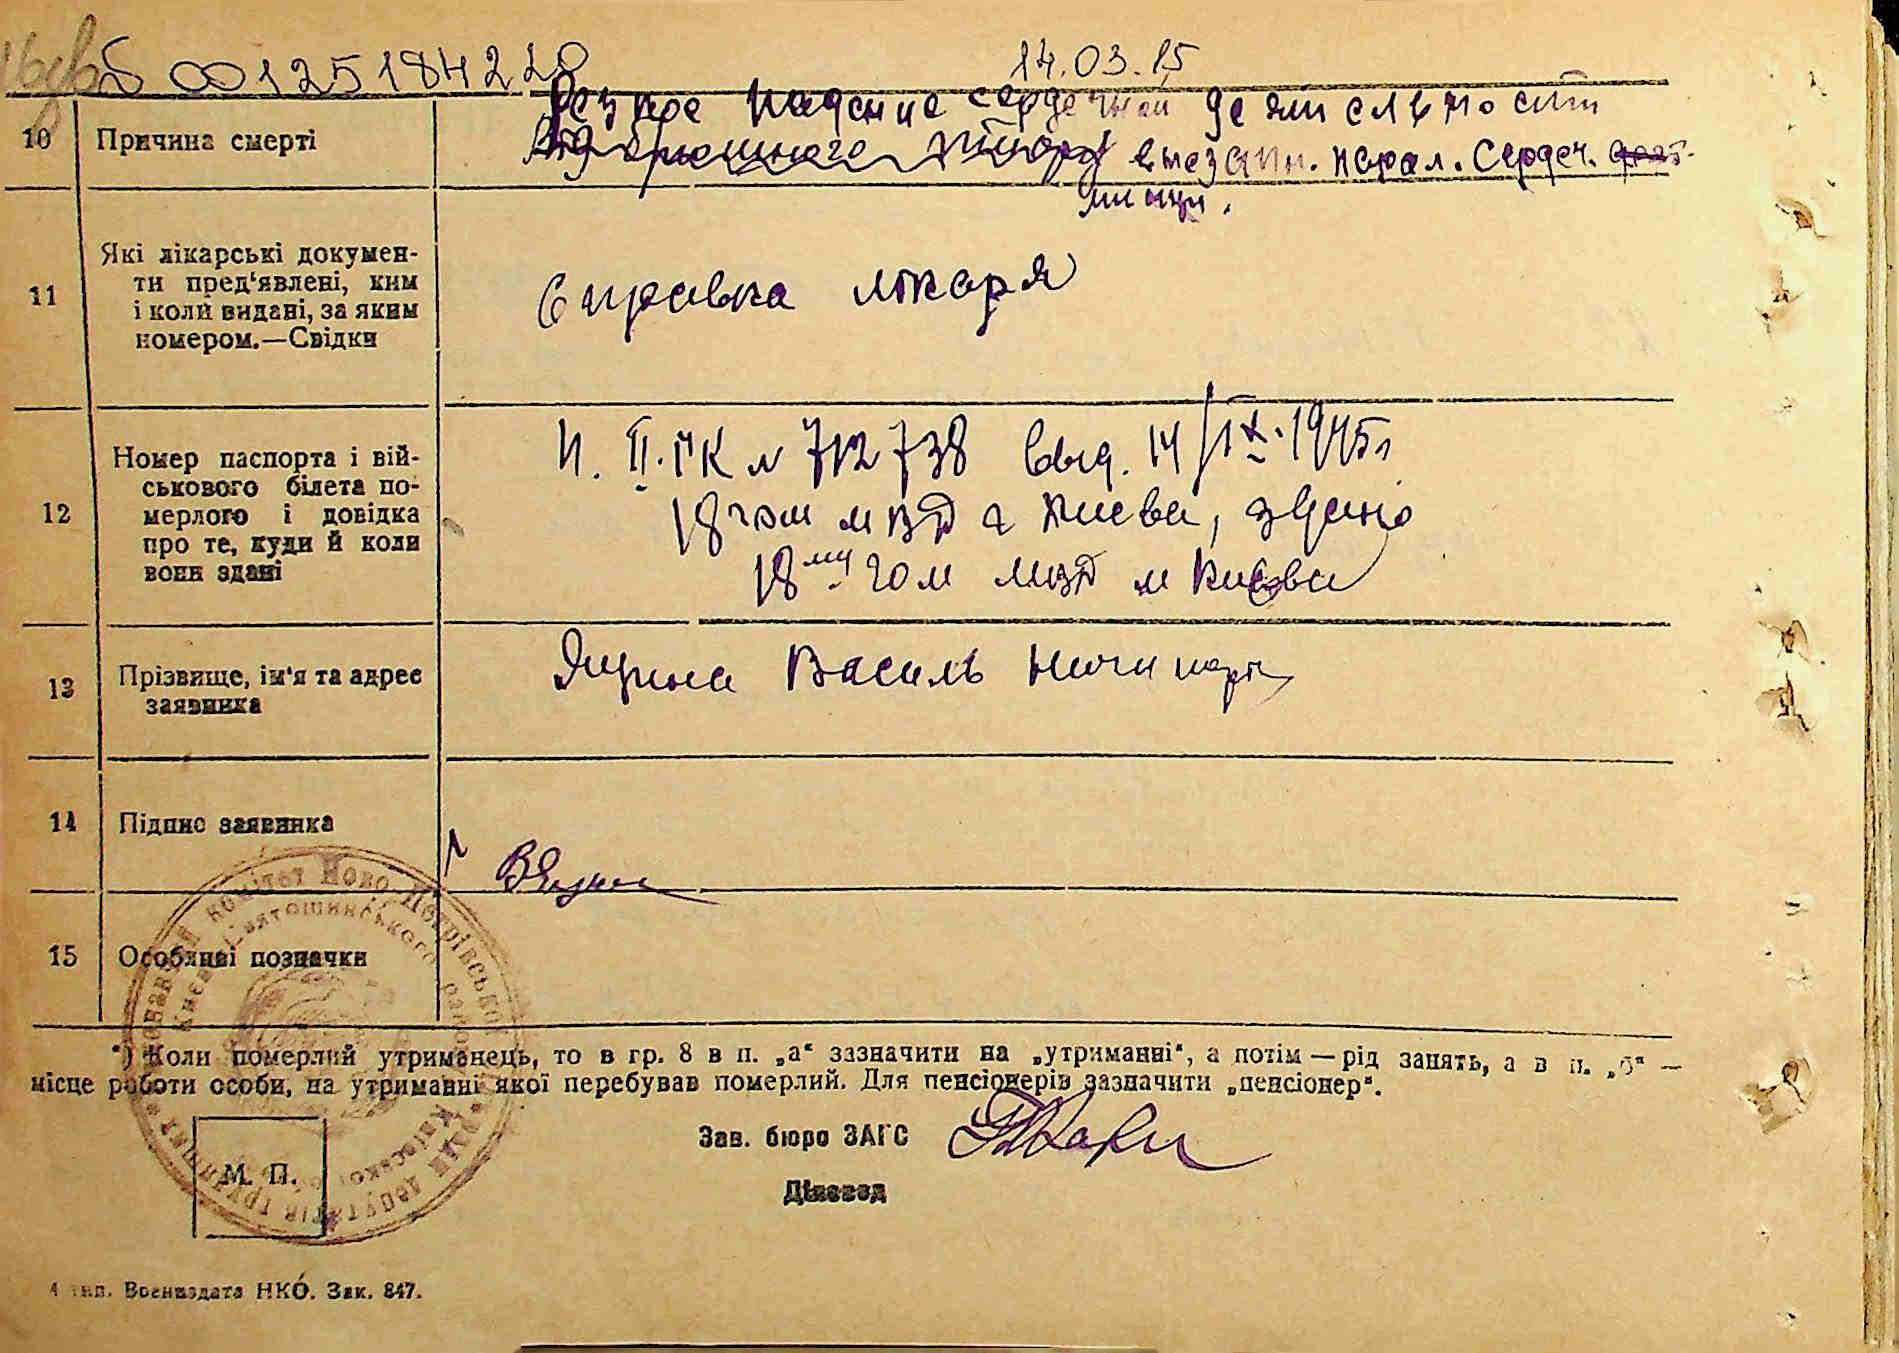 00125184220
14.03.15
Резкое падение сердечной деятельности
10 Причина смерті
внезапн. парал. сердеч.
мышцы.
11 Які лікарські докумен-
ти пред'явлені, ким
і коли видані, за яким
номером.—Свідки
Справка лікаря
12 Номер паспорта і вій-
ськового білета по-
мерлого і довідка
про те, куди й коли
вони здані
712738 выд. 14/IX.1945г
18 Киева, здано
18 Києва
13 Прізвище, ім'я та адрес
заявника
Яцина Василь Ничипор
14 Підпис заявника
15 Особливі позначки
*) Коли померлий утриманець, то в гр. 8 в п. „а“ зазначити на „утриманні“, а потім — рід занять, а в п. „б“ —
місце роботи особи, на утриманні якої перебував померлий. Для пенсіонерів зазначити „пенсіонер“.
Зав. бюро ЗАГС
М. П.
Діловод
4 тип. Воениздата НКО. Зак. 847.